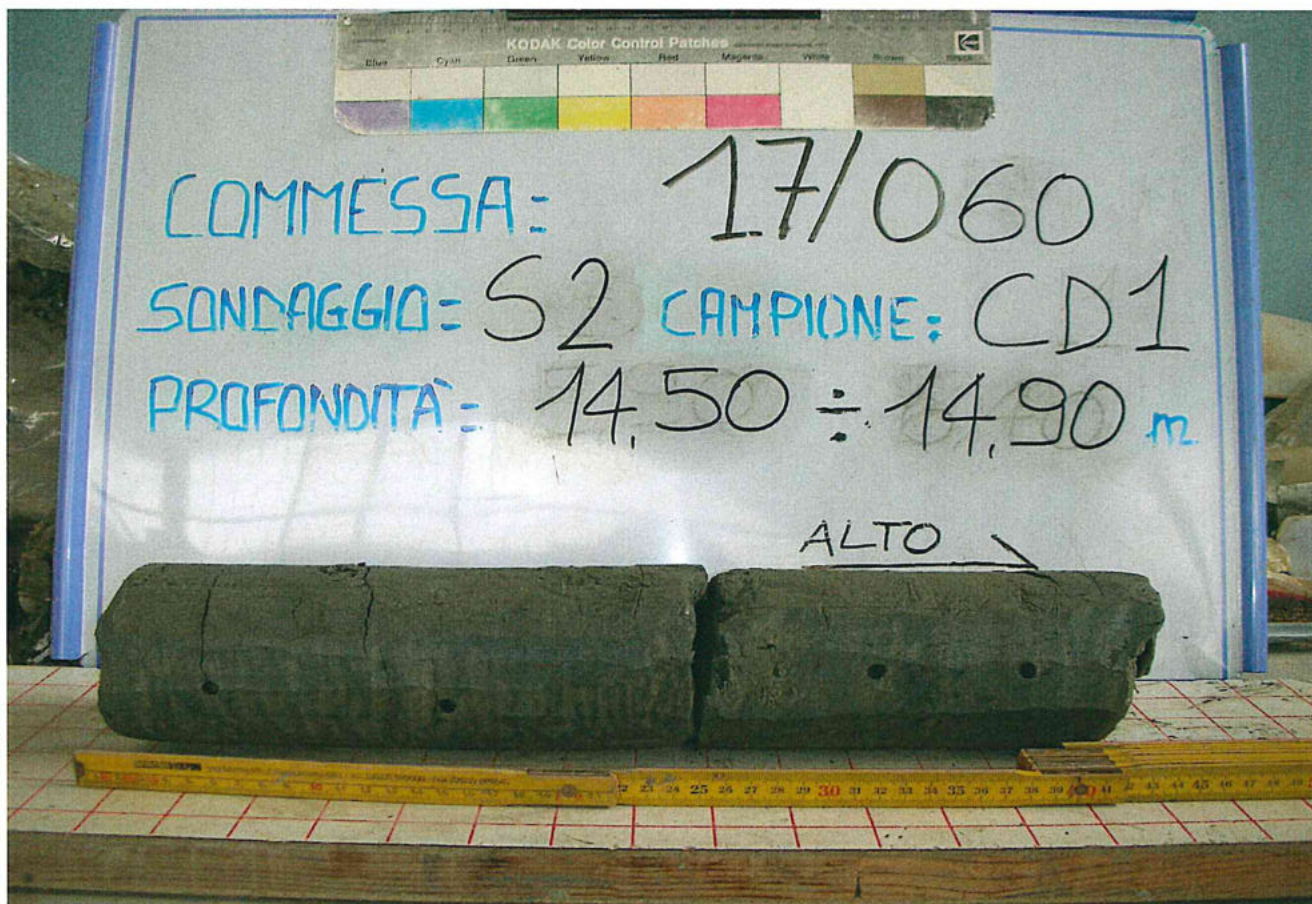 KODAK Color Control Patches
Blue Cyan Green Yellow Red Magenta White
COMMESSA: 17/060
SONDAGGIO: S2 CAMPIONE: CD1
PROFONDITÀ: 14,50 ÷ 14,90 m
ALTO
23 24 25 26 27 28 29 30 31 32 33 34 35 36 37 38 39 40 41 42 43 44 45 46 47